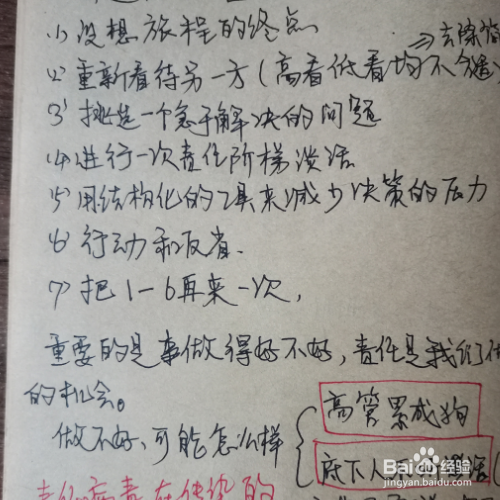 ⇒去除偏
(1) 设想旅程的终点
(2) 重新看待另一方(高看低看均不合适
(3) 挑选一个急于解决的问题
(4) 进行一次责任阶梯谈话
(5) 用结构化的工具来减少决策的压力
(6) 行动和反省.
(7) 把1-6再来一次,
重要的是事做得好不好,责任是我们
的机会。
做不好,可能怎么样
高管累成狗
底下人
责任病毒在传染的
Baidu经验
jingyan.baidu.com